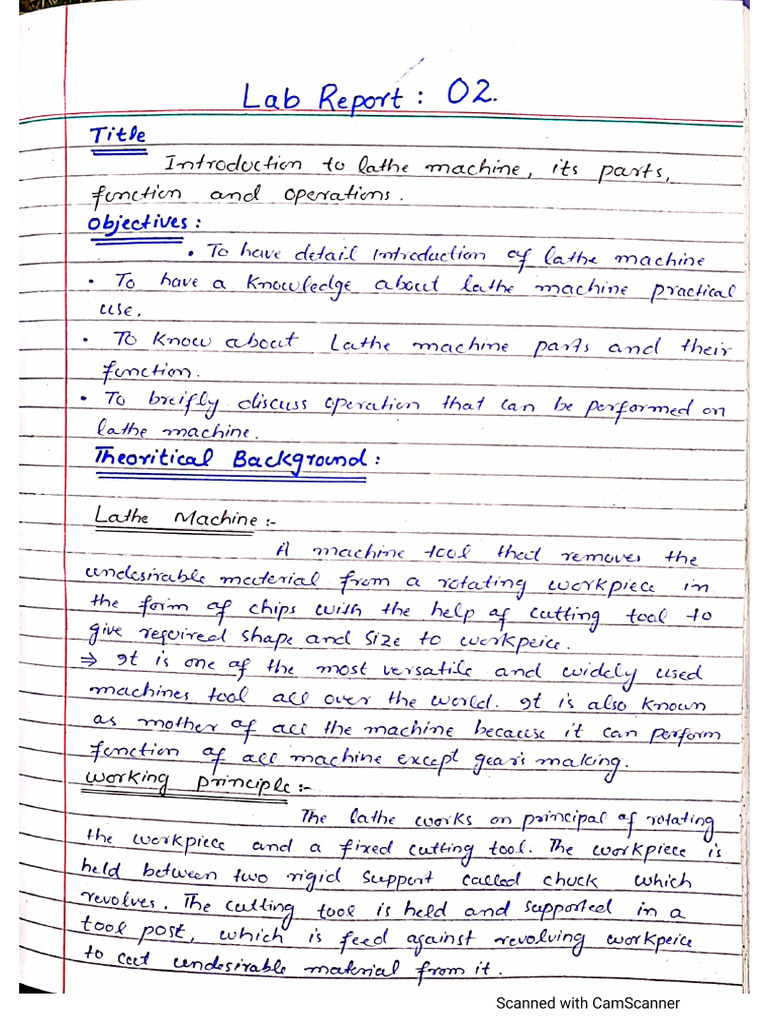 Lab Report : 02.
Title
Introduction to lathe machine, its parts,
function and operations.
Objectives :
• To have detail introduction of lathe machine
• To have a knowledge about lathe machine practical
use.
• To know about Lathe machine parts and their
function.
• To breifly discuss operation that can be performed on
lathe machine.
Theoritical Background :
Lathe Machine :-
A machine tool that removes the
undesirable material from a rotating workpiece in
the form of chips with the help of cutting tool to
give required shape and size to workpeice.
⇒ It is one of the most versatile and widely used
machines tool all over the world. It is also known
as mother of all the machine because it can perform
function of all machine except gear's making.
Working principle :-
The lathe works on principal of rotating
the workpiece and a fixed cutting tool. The workpiece is
held between two rigid support called chuck which
revolves. The cutting tool is held and supported in a
tool post, which is feed against revolving workpeice
to cut undesirable material from it.
Scanned with CamScanner